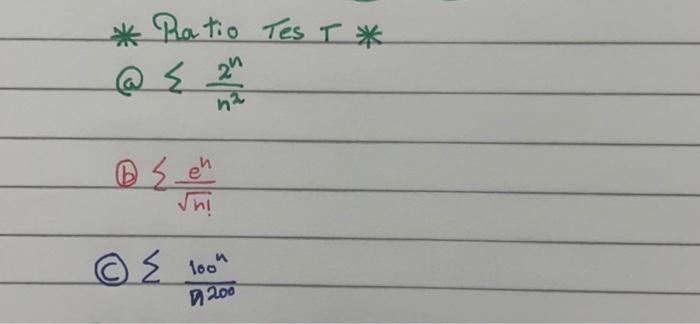 * Ratio Test *
ⓐ Σ 2ⁿ/n²
ⓑ Σ eⁿ/√n!
ⓒ Σ 100ⁿ/n²⁰⁰